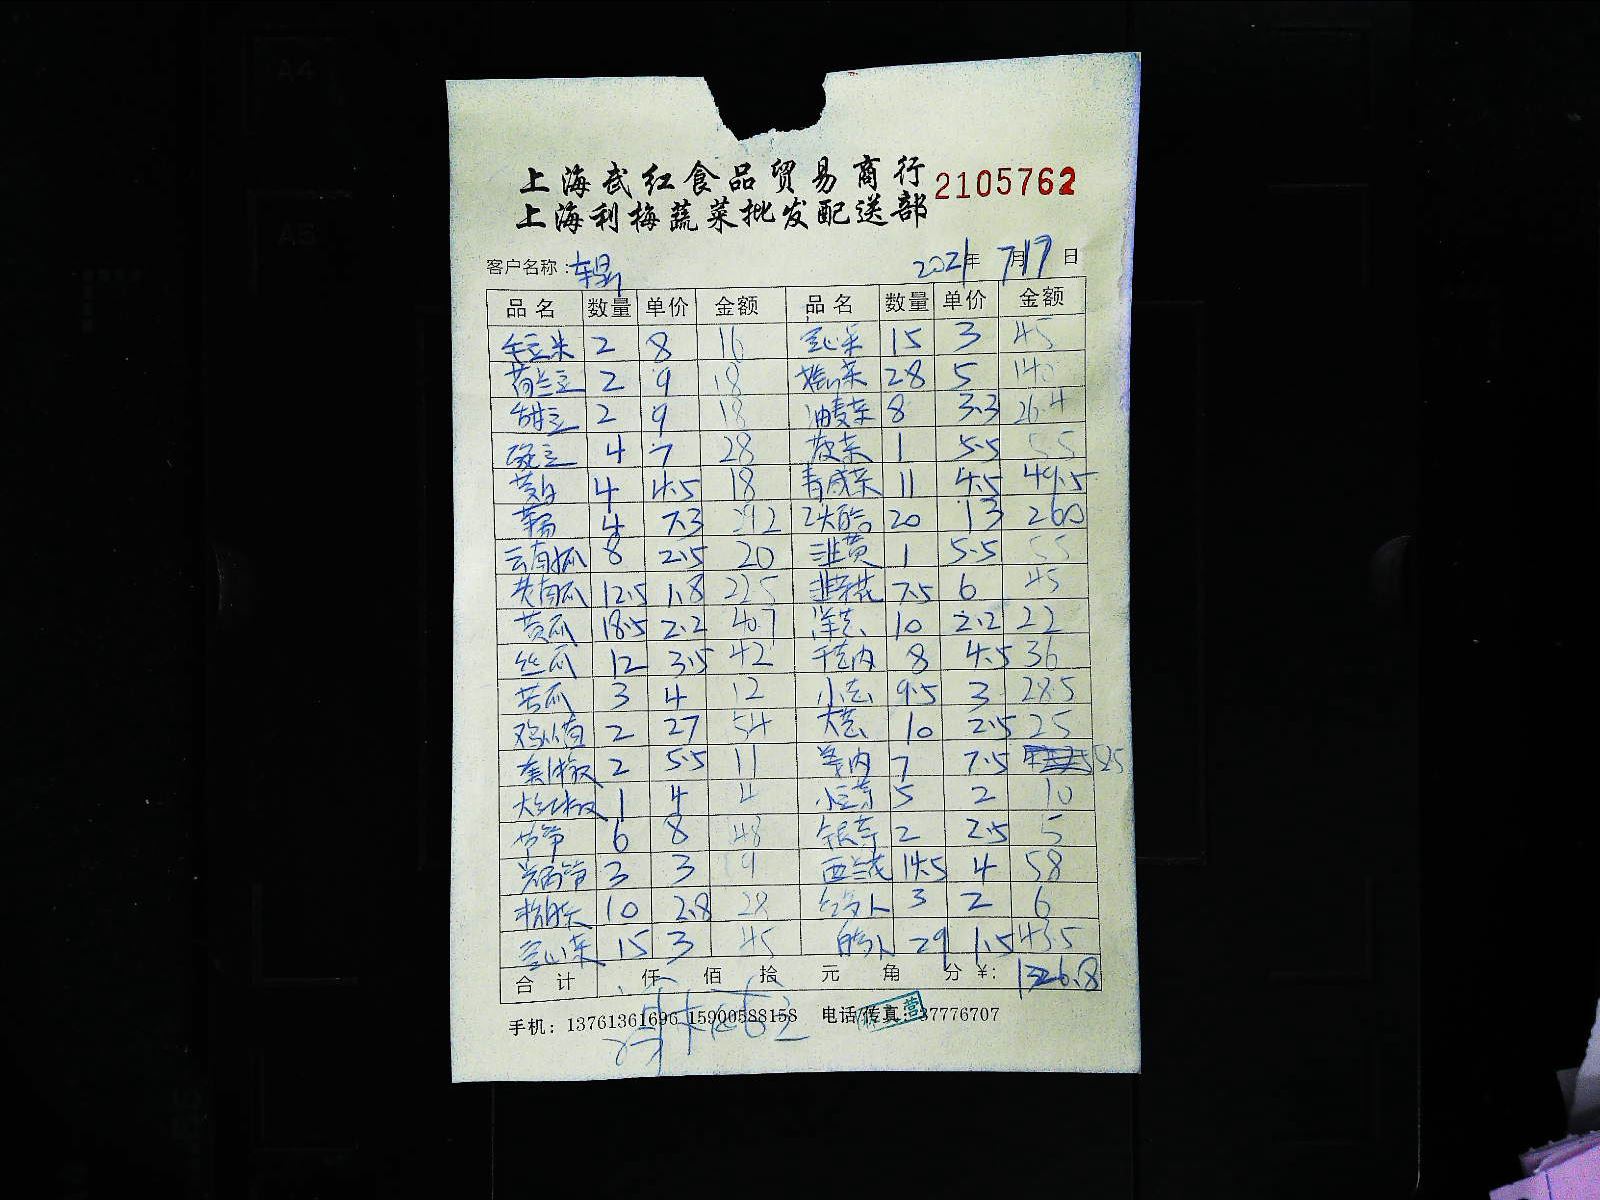 上海武红食品贸易商行
2105762
上海利梅蔬菜批发配送部
客户名称： 2021年 7月17日
品名 数量 单价 金额 品名 数量 单价 金额
2 8 16 空心菜 15 3 45
荷兰豆 2 9 18 28 5 140
甜豆 2 9 18 油麦菜 8 3.3 26.4
豌豆 4 7 28 菠菜 1 5.5 5.5
茭白 4 4.5 18 11 4.5 49.5
4 7.3 29.2 20 13 260
云南瓜 8 2.5 20 韭黄 1 5.5 5.5
老南瓜 12.5 1.8 22.5 韭菜花 7.5 6 45
黄瓜 18.5 2.2 40.7 洋芋 10 2.2 22
丝瓜 12 3.5 42 8 4.5 36
苦瓜 3 4 12 9.5 3 28.5
2 27 54 10 2.5 25
2 5.5 11 7 7.5 52.5
大红椒 1 4 4 5 2 10
6 8 48 银芽 2 2.5 5
3 3 9 西兰花 14.5 4 58
10 2.8 28 3 2 6
空心菜 15 3 45 29 1.5 43.5
合计 仟 佰 拾 元 角 分 ¥: 1326.8
手机：13761361696 15900588158 电话/传真：37776707